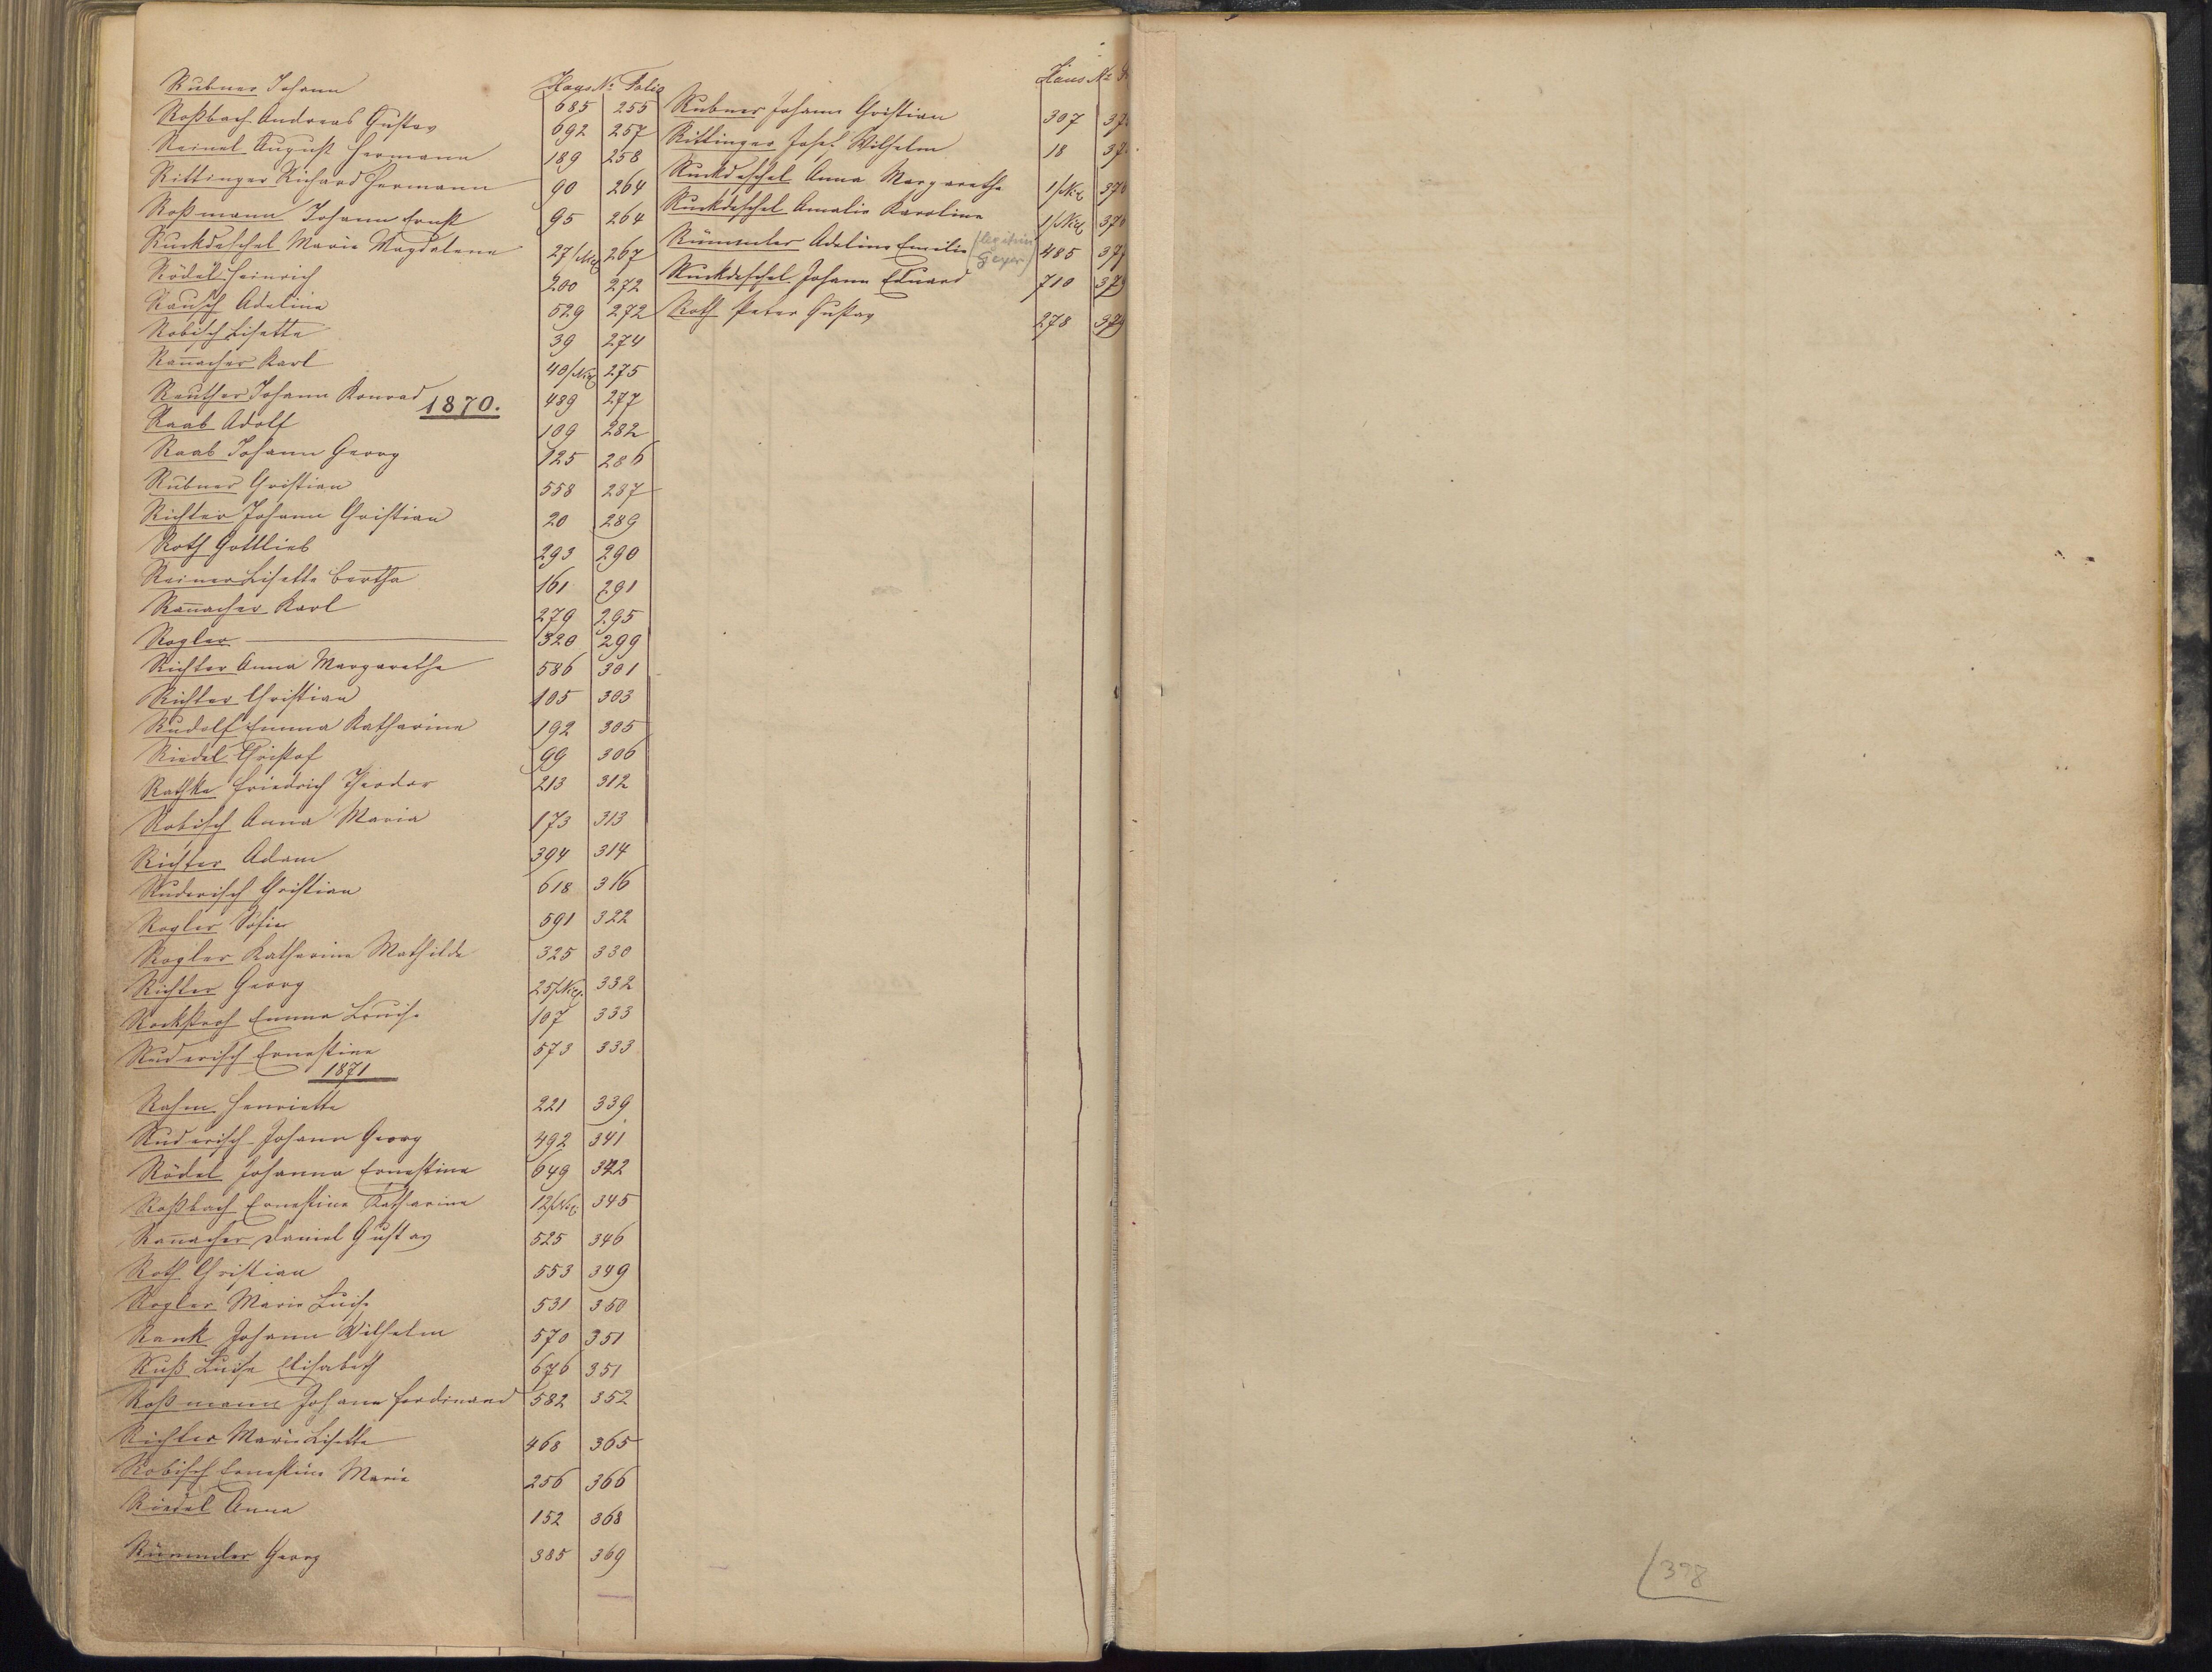 Haus № Folio
Rubner Johann 685 255
Roßbach Andreas Gustav 692 257
Reinel August Hermann 189 258
Rittinger Richard Hermann 90 264
Roßmann Johann Ernst 95 264
Ruckdeschel Marie Magdalena 27/ 267
Rödel Heinrich 200 272
Rausch Adeline 529 272
Robisch Lisette 39 274
Ran̄acher Karl 40/Nie 275
Reuther Johann Konrad 489 277
1870.
Raab Adolf 109 282
Raab Johann Georg 125 286
Rubner Christian 558 287
Richter Johann Christian 20 289
Roth Gottlieb 293 290
Reiner Lisette Bertha 161 291
Ran̄acher Karl 279 295
Rogler 320 299
Richter Anna Margaretha 586 301
Richter Christian 105 303
Rudolf Emma Katharina 192 305
Riedel Christof 99 306
Rathke Friedrich Theodor 213 312
Robisch Anna Maria 173 313
Richter Adam 394 314
Ruderisch Christian 618 316
Rogler Sofie 591 322
Rogler Katharina Mathilde 325 330
Richter Georg 25/Nie. 332
Rockstroh Emma Louise 107 333
Ruderisch Ernestine 573 333
1871
Rahm Henriette 221 339
Ruderisch Johann Georg 492 341
Rödel Johanna Ernestine 649 342
Roßbach Ernestine Katharina 12/Nie. 345
Ran̄acher Daniel Gustav 525 346
Roth Christian 553 349
Rogler Marie Luise 531 350
Rank Johann Wilhelm 570 351
Ruß Luise Elisabeth 676 351
Roßmann Johann Ferdinand 582 352
Richter Marie Lisette 468 365
Robisch Ernestine Marie 256 366
Riedel Anna 152 368
Rümmler Georg 385 369
Haus №
Rubner Johann Christian 307
Rittinger Josef Wilhelm 18
Ruckdeschel Anna Margaretha 1/Nie 376
Ruckdeschel Amalie Karoline 1/Nie 376
Rümmler Adeline Emilie (legitim. Geyer) 485
Ruckdeschel Johann Eduard 710
Roth Peter Gustav 278
378